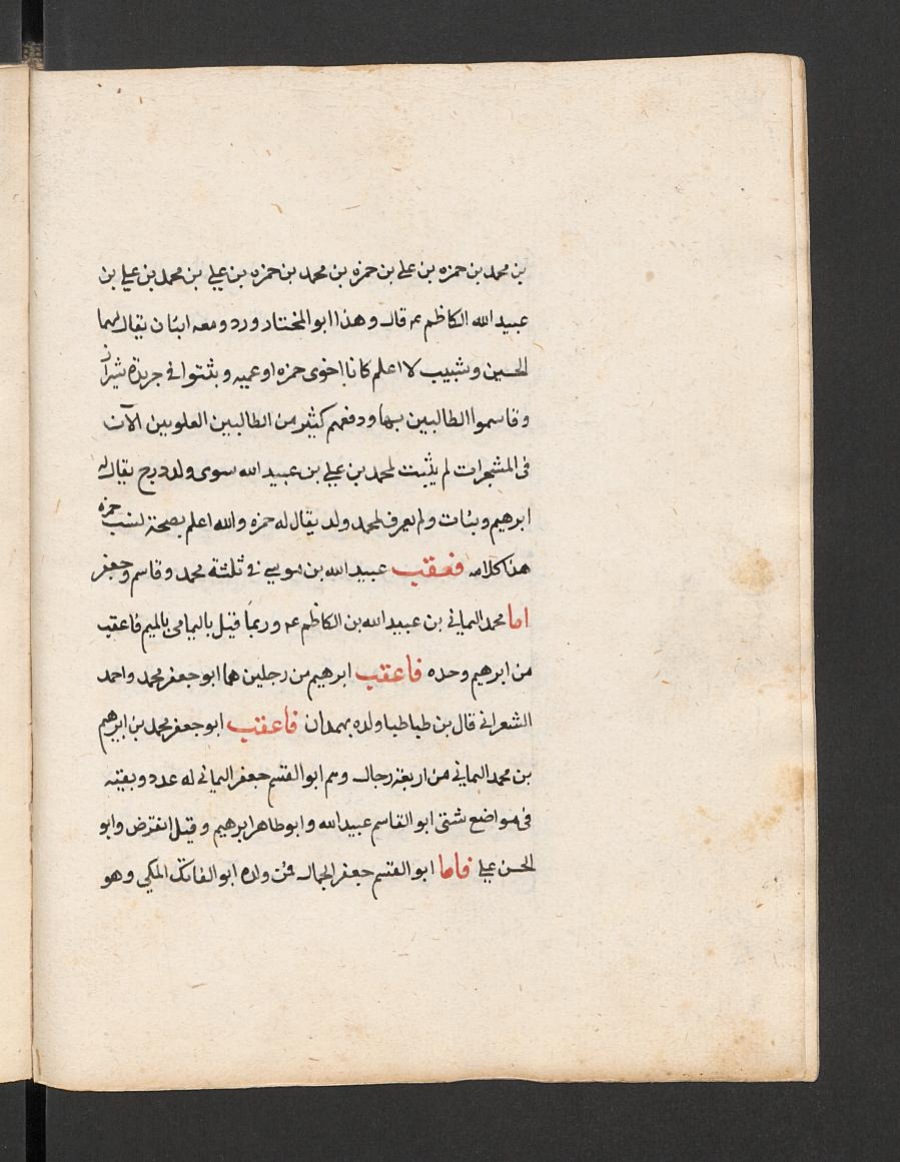 بن محمد بن حمزه بن علي بن حمزه بن محمد بن حمزه بن علي بن محمد بن علي بن
عبيد الله الكاظم عم قال وهذا ابو المختار ورد ومعه ابنان يقال لهما
الحسين وشبيب لا اعلم كانا اخوى حمزه او عميه وثبتوا في جريدة شيراز
وقاسموا الطالبين بها ودفعهم كثير من الطالبين العلويين الآن
فى المشجرات لم يثبت لمحمد بن علي بن عبيد الله سوى ولد درج يقال له
ابرهيم وبنات ولم يعرف لمحمد ولد يقال له حمزه والله اعلم بصحة نسب حمزه
هذا كلامه فعقب عبيد الله بن موسى في ثلثة محمد وقاسم وجعفر
اما محمد اليماني بن عبيد الله بن الكاظم عم وربما قيل باليمامى بالميم فاعقب
من ابرهيم وحده فاعقب ابرهيم من رجلين هما ابو جعفر محمد واحمد
الشعراني قال بن طباطبا ولده بهمدان فاعقب ابو جعفر محمد بن ابرهيم
بن محمد اليماني من اربعة رجال وهم ابو القسم جعفر اليماني له عدد وبقيته
فى مواضع شتى ابو القاسم عبيد الله وابو طاهر ابرهيم وقيل انقرض وابو
الحسن علي فاما ابو القسم جعفر الجمال فمن ولده ابو الفاتك المكي وهو